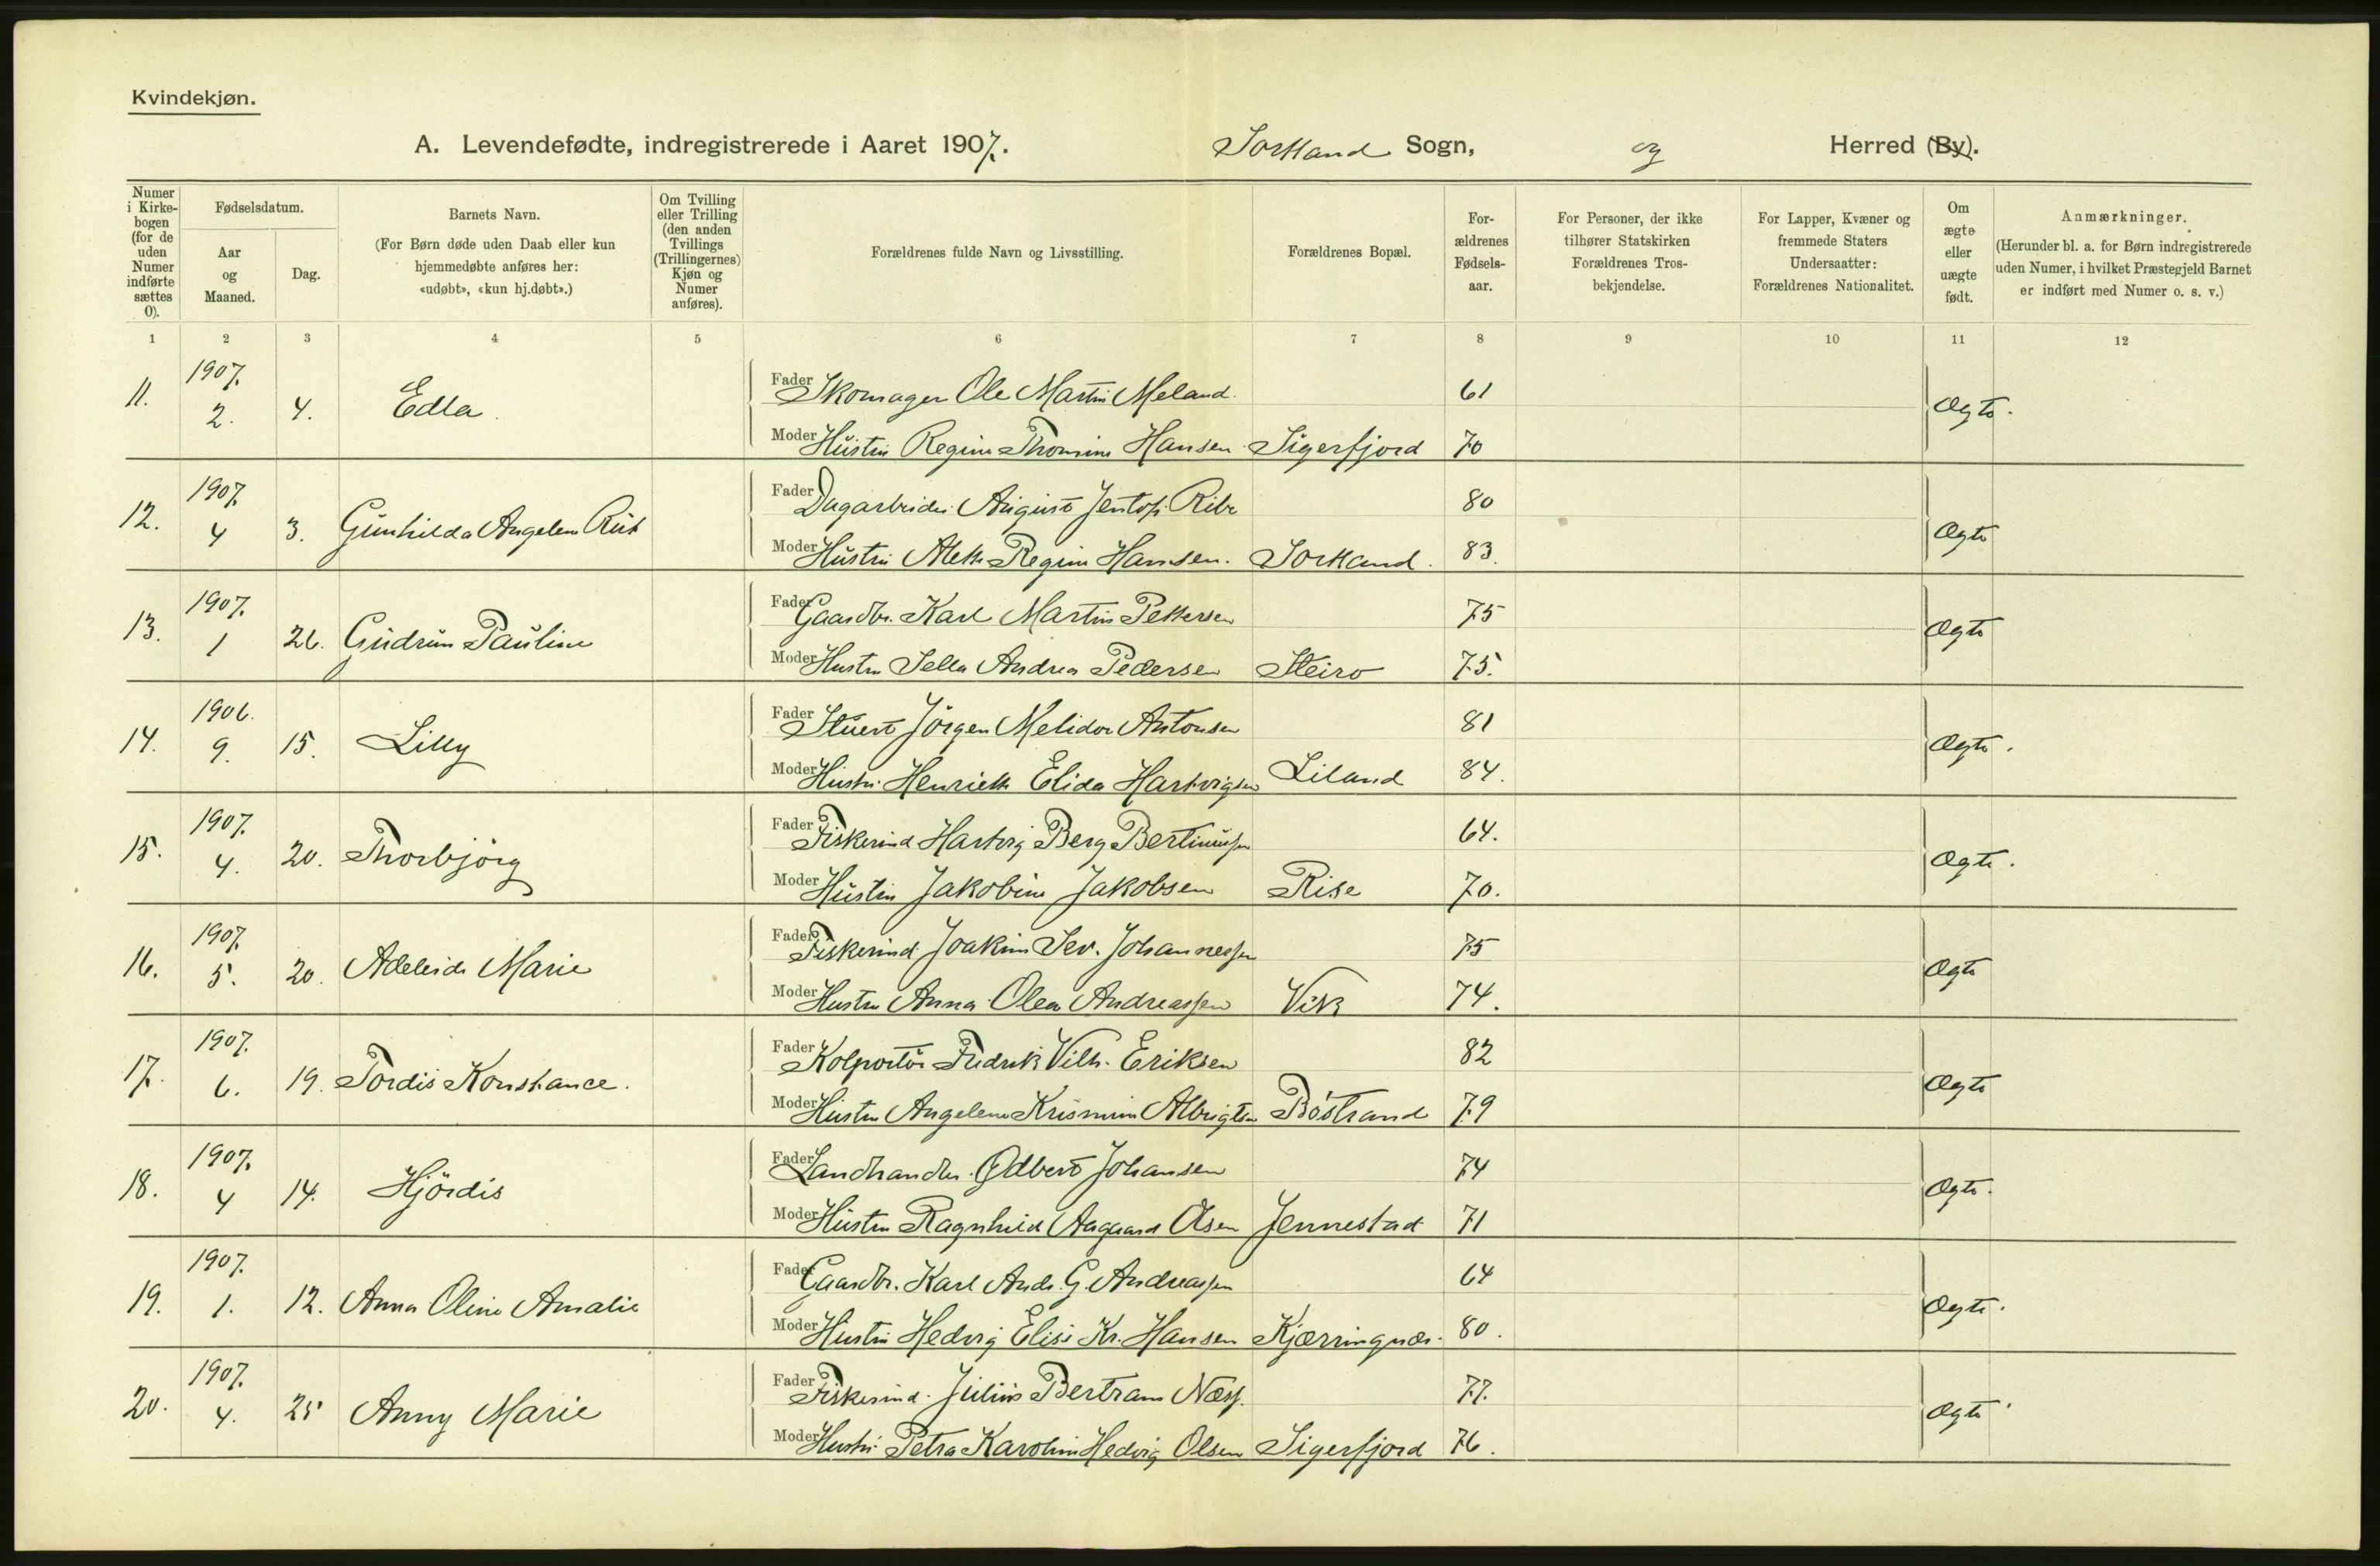 Kvindekjøn.
A. Levendefødte, indregistrerede i Aaret 1907. Sortland Sogn, og Herred (By).
Numer i Kirke- bogen (for de uden Numer indførte sættes 0).
Fødselsdatum.
Aar og Maaned.
Dag.
Barnets Navn.
(For Børn døde uden Daab eller kun
hjemmedøbte anføres her:
«udøbt», «kun hj.døbt».)
Om Tvilling
eller Trilling
(den anden
Tvillings
(Trillingernes)
Kjøn og
Numer
anføres).
Forældrenes fulde Navn og Livsstilling.
Forældrenes Bopæl.
For-
ældrenes
Fødsels-
aar.
For Personer, der ikke
tilhører Statskirken
Forældrenes Tros-
bekjendelse.
For Lapper, Kvæner og
fremmede Staters
Undersaatter:
Forældrenes Nationalitet.
Om
ægte
eller
uægte
født.
Anmærkninger.
(Herunder bl. a. for Børn indregistrerede
uden Numer, i hvilket Præstegjeld Barnet
er indført med Numer o. s. v.)
1 2 3 4 5 6 7 8 9 10 11 12
11. 1907. 2. 4. Edla Fader Skomager Ole Martin Meland. 61 Ægte.
Moder Hustru Regine Thomine Hansen Sigerfjord 70
12. 1907. 4 3. Gunhilda Angelem Rut Fader Dagarbeider August Jentoft Ribe 80 Ægte
Moder Hustru Aleth Regine Hansen. Sortland. 83.
13. 1907. 1 26. Gudrun Pauline Fader Gaardbr. Karl Martin Pettersen 75 Ægte
Moder Hustru Sella Andrea Pedersen Steiro 75.
14. 1906. 9. 15. Lilly Fader Stuert Jörgen Melidor Antonsen 81 Ægte.
Moder Hustru Henriette Elida Hartvigsen Liland 84.
15. 1907. 4. 20. Thorbjörg Fader Fiskerind Hartvig Berg Bertinussen 64. Ægte.
Moder Hustru Jakobine Jakobsen Rise 70.
16. 1907. 5. 20. Adeleide Marie Fader Fiskerind. Joakim Sev. Johannessen 75 Ægte
Moder Hustru Anna Olea Andreassen Vik 74.
17. 1907. 6. 19. Tordis Konstance. Fader Kolportör Fredrik Vilh. Eriksen 82 Ægte
Moder Hustru Angelem Krismine Albrigtsen Böstrand 79
18. 1907. 4 14. Hjördis Fader Landhandler Odbert Johansen 74 Ægte.
Moder Hustru Ragnhild Aagaard Olsen Jennestad 71
19. 1907. 1. 12. Anna Oline Amalie Fader Gaardbr. Karl Andr. G. Andreassen 64 Ægte.
Moder Hustru Hedvig Elise Kr. Hansen Kjærringnæs. 80.
20. 1907. 4. 25 Anny Marie Fader Fiskerind. Julius Bertram Næss. 77. Ægte.
Moder Hustru Petra Karoline Hedvig Olsen Sigerfjord 76.